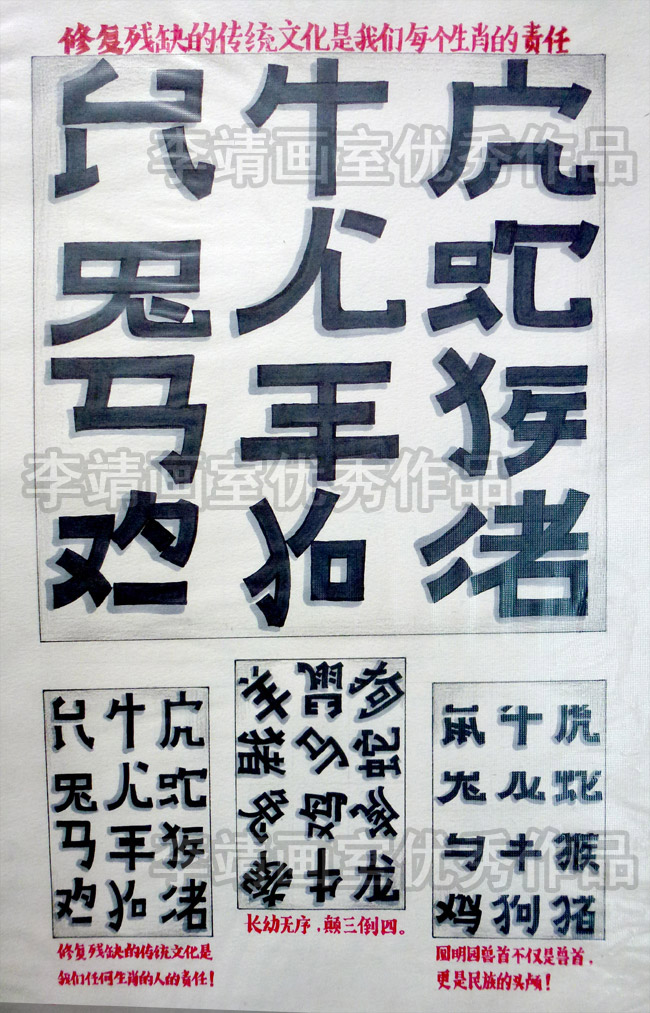 修复残缺的传统文化是我们每个生肖的责任
鼠牛虎
李靖画室优秀作品
兔龙蛇
马羊猴
李靖画室优秀作品
鸡狗猪
鼠牛虎
兔龙蛇
马羊猴
鸡狗猪
修复残缺的传统文化是
我们任何生肖的人的责任!
羊鼠狗
猪马蛇
兔鸡虎
猴牛龙
长幼无序,颠三倒四。
鼠牛虎
兔龙蛇
马牛猴
鸡狗猪
李靖画室优秀作品
圆明园兽首不仅是兽首,
更是民族的头颅!